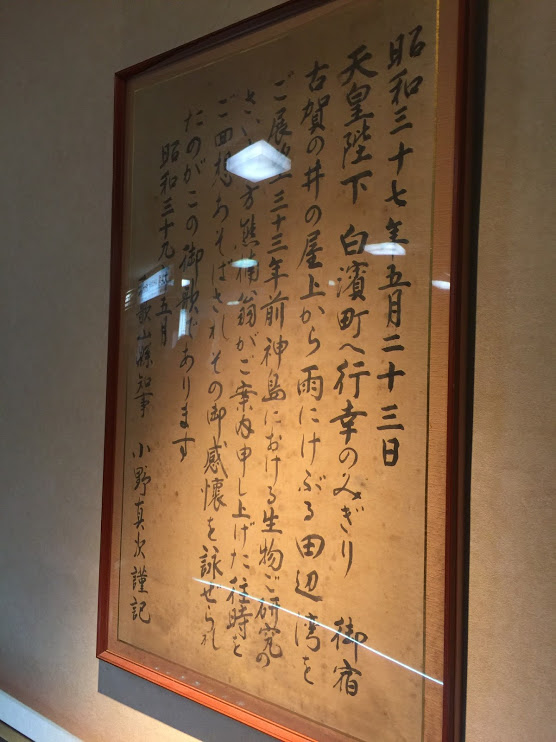 昭和三十七年五月二十三日
天皇陛下 白濱町へ行幸のみぎり 御宿
古賀の井の屋上から雨にけぶる田辺湾を
ご展望 三十三年前神島における生物ご研究の
さい南方熊楠翁がご案内申し上げた往時を
ご回想あそばされその御感懐を詠ぜられ
たのがこの御歌であります
昭和三十九年五月
和歌山縣知事 小野真次謹記